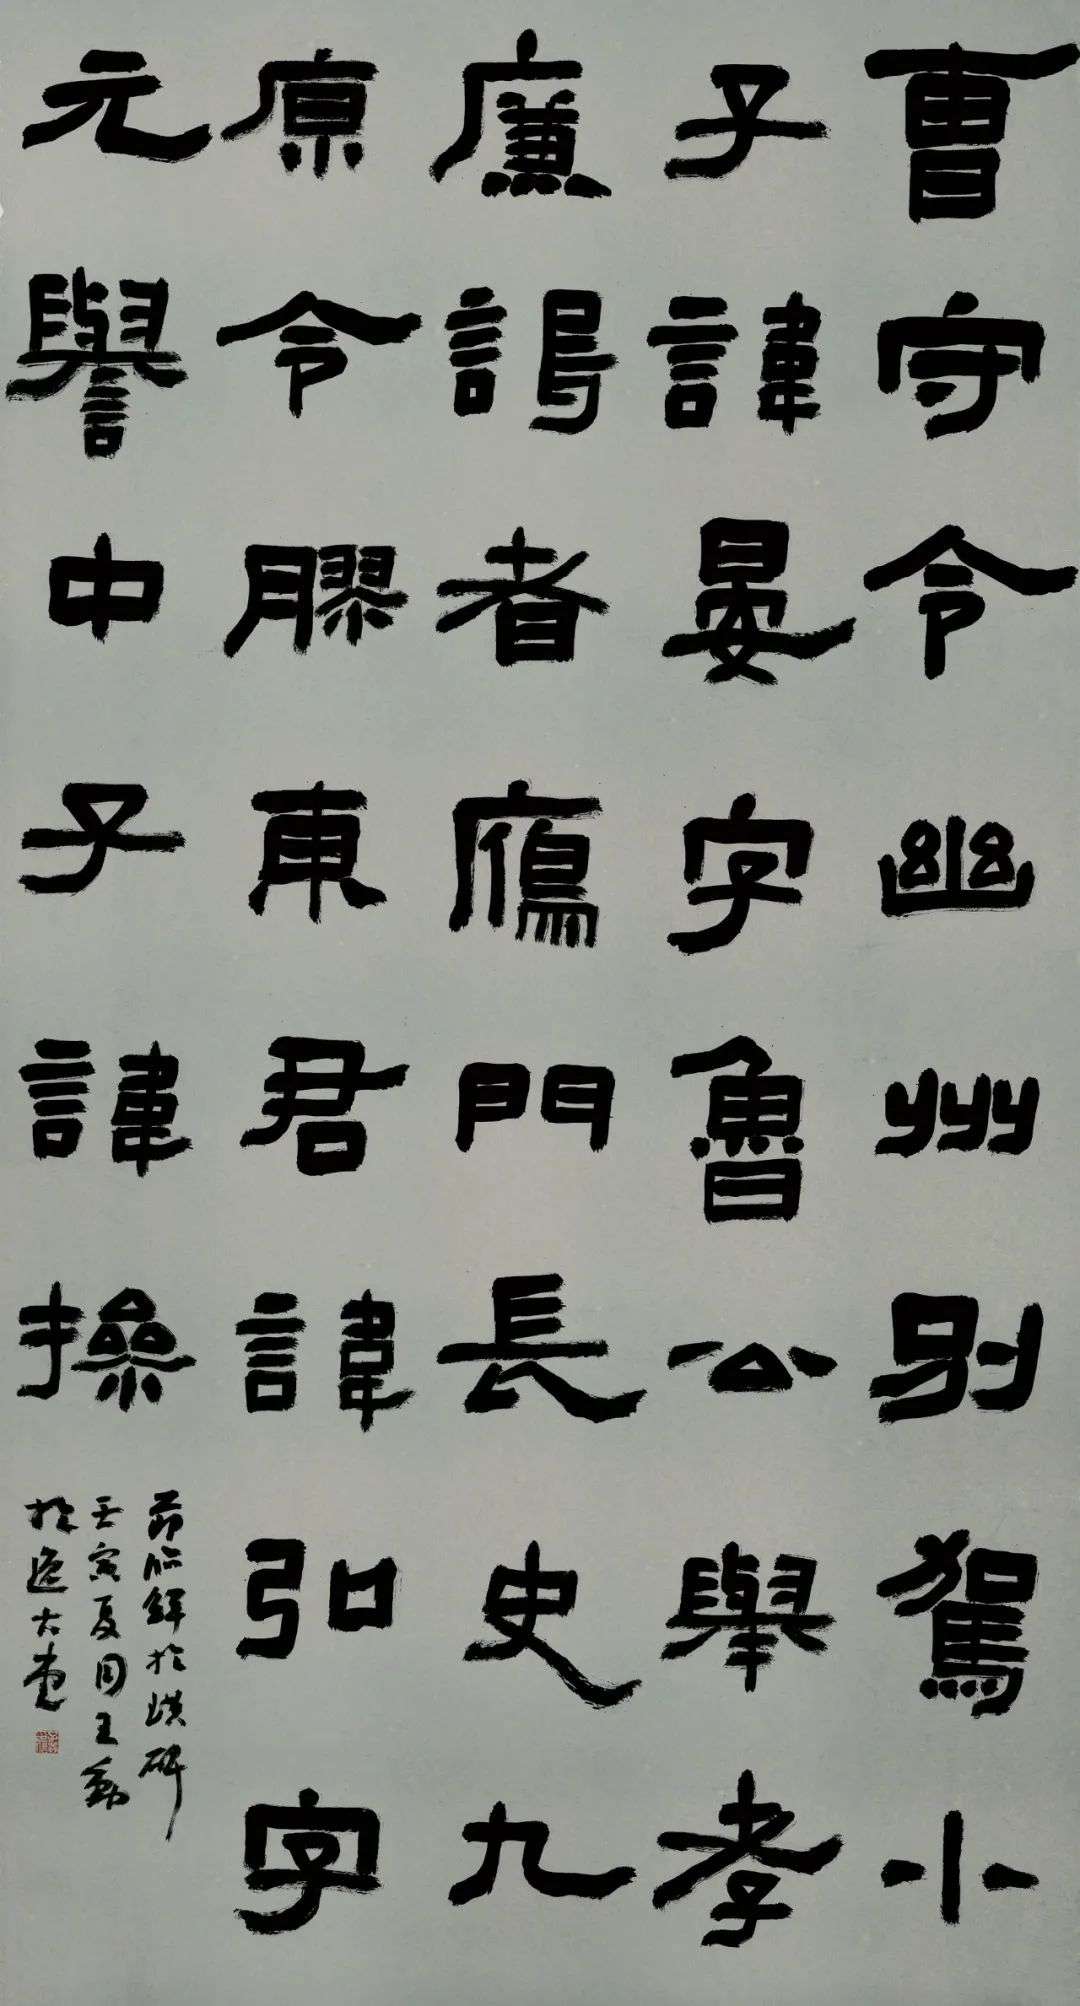 曹守令幽州別駕小
子諱晏字魯公舉孝
廉謁者鴈門長史九
原令膠東君諱弘字
元譽中子諱操
節臨鮮於璜碑
壬寅夏月王
於